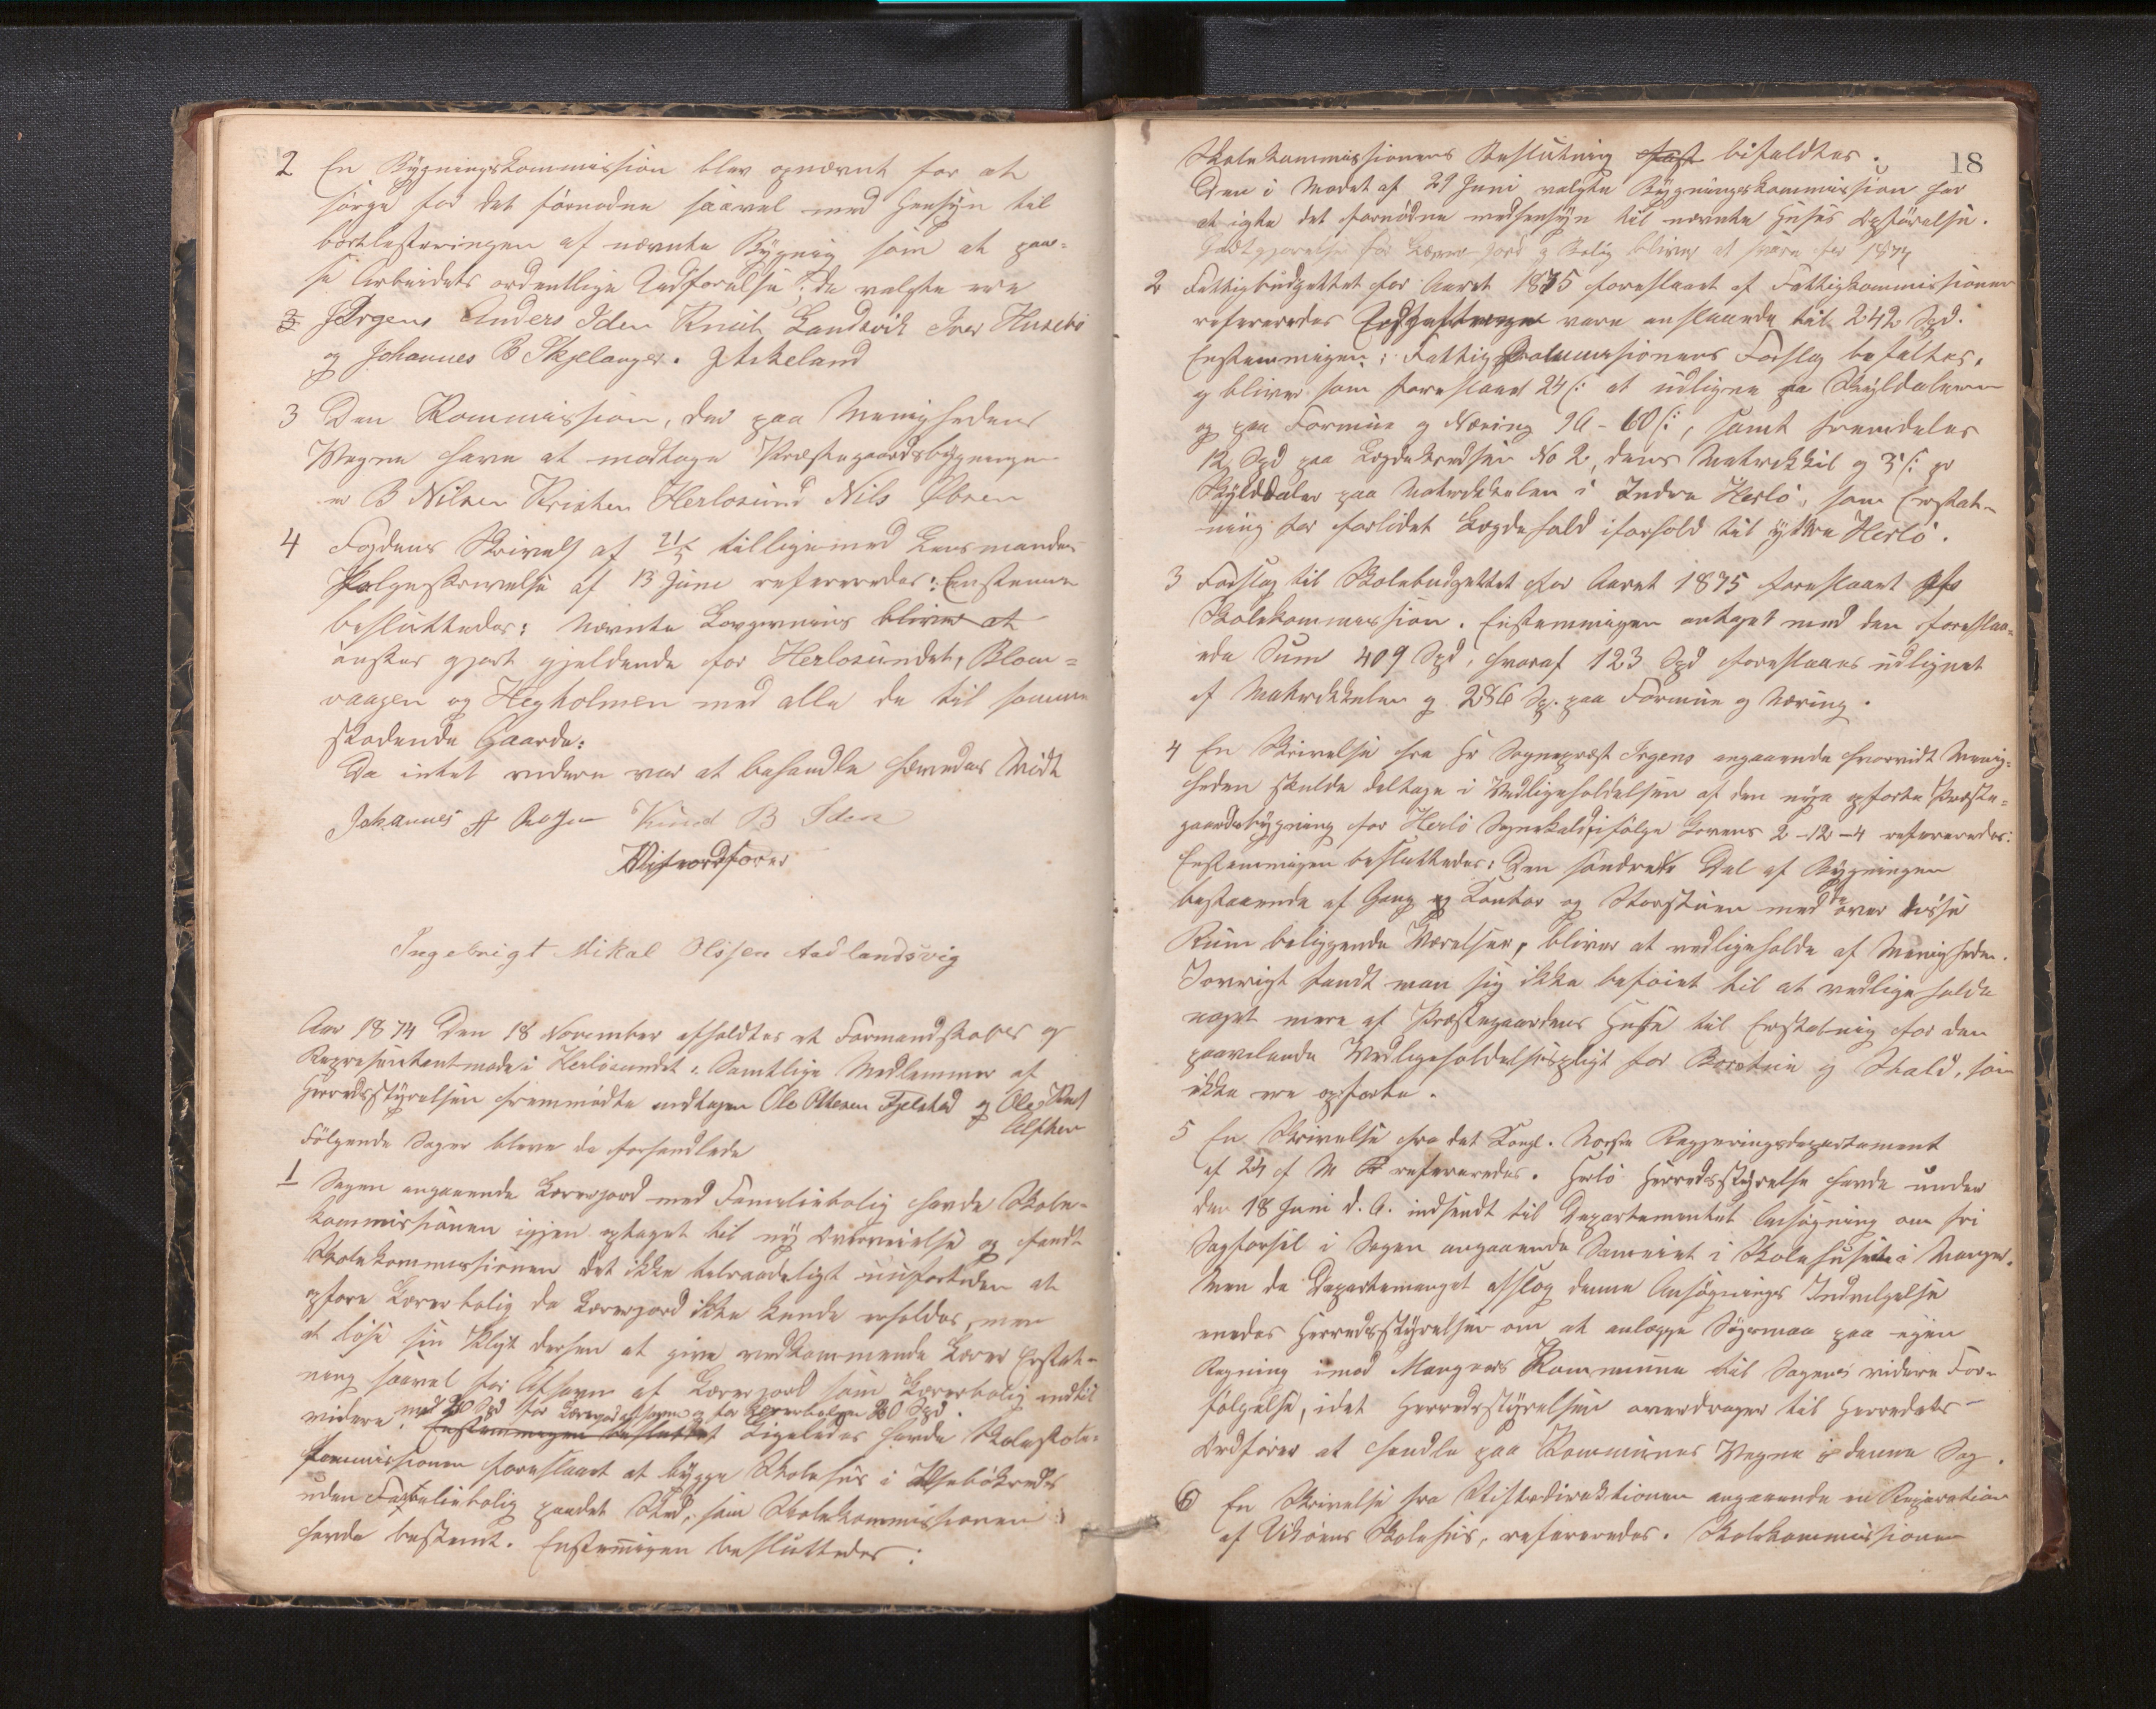 2 En Bygningskommission blev opnævnt for at
sørge for det fornødne saavel med Hensyn til
bortlesteringen af nævnte Bygnig som at paa-
se Arbeidets ordentlige Udførelse; de valgte ere
Irgens Anders Iden Knut Landsvik Iver Husebø
og Johannes B Skjelanger. J Askeland
3 Den Kommission, der paa Menighedens
Vegne have at modtage Præstegaardsbygningen
er B Nilsen Kristen Herlosund Nils Ibsen
4 Fogdens Skrivels af 21/5 tilligemed Lensmandens
Følgeskrivelse af 13 Juni refereredes: Enstemm
besluttedes: Nævnte Lovgivnins bliver at
ønskes gjort gjeldende for Herlosundet, Blom=
vaagen og Hegholmen med alle de til samme
stødende Gaarde:
Da intet videre var at behandle hævedes Mødt
Johannes Knud B Iden
Viseordfører
Ingebrigt Mikal Olssen Aadlandsvig
Aar 1874 Den 18 November afholdtes et Formandskabs og
Representantmøde i Herløsundet. Samtlige Medlemmer af
Herredsstyrelsen fremmødte undtagen Ole Ottesen Fjelstad og Ole
Følgende Sager bleve da forhandlede
1 Sagen angaaende Lærerjord med Familiebolig havde Skole-
kommissionen igjen optaget til ny Overveielse og fandt
Skolekommissionen det ikke tilraadeligt nufortiden at
opføre Lærerbolig da Lærerjord ikke kunde erholdes, men
at løse sin Pligt dersen at give vedkommende Lærer Erstat-
ning saavel for Afsavn af Lærerjord som Lærerbolig indtil
med 20 Spd for Lærerjordafsavn og for Lærerboligen 20 Spd
videre. Enstemmigen besluttet Ligeledes havde Skole
kommissionen foreslaaet at bygge Skolehus i Husebøkreds
uden Familiebolig paadet Sted, som Skolekommissionen
havde bestemt. Enstemigen besluttedes:
18
Skolekommissionens Beslutning bifaldtes.
Den i Mødet af 29 Juni valgte Bygningskommission har
at igte det fornødne medhensyn til nævnte Huses Opførelse.
Godtgjørelse for Lærer Jord og Bolig bliver at svare for 1874
2 Fattigbudgettet for Aaret 1875 foreslaaet af Fattigkommissionen
refereredes vare anslaaede til 242 Spd.
Enstemmigen: Fattigkommissionens Forslag bifaltes,
og bliver som foreslaaet 24 ß at udligne paa Skylddaleren
og paa Formue og Næring 96 - 60 ß, samt fremdeles
12 Spd paa Lægdekredsen No 2, dens Matrikkel og 3 ß pr
Skylddaler paa Matrikkelen i Indre Herlø, som Erstat-
ning for forlidet Lægdehold iforhold til ytre Herlø.
3 Forslag til Skolebudgettet for Aaret 1875 foreslaaet af
Skolekommission. Enstemmigen antaget med den foreslaa-
ede Sum 409 Spd, hvoraf 123 Spd foreslaaes udlignet
af Matrikkelen og 286 Sp. paa Formue og Næring.
4 En Skrivelse fra Hr Sogneprest Irgens angaaende hvorvidt Menig=
heden skulde deltage i Vedligeholdelsen af den nye opførte Præste=
gaardsbygning for Herlø Sognekald ifølge Lovens 2-12-4 refereredes:
Enstemmigen besluttedes: Den søndre Del af Bygningen
bestaaende af Gang og Kontor og Storstuen med de over disse
Rum beliggende Værelser, bliver at vedligeholde af Menigheden.
Iøvrigt fandt man sig ikke beføiet til at vedlige holde
noget mere af Præstegaardens Huse til Erstatnig for den
paavilende Vedligeholdelsespligt for Borstue og Stald, som
ikke ere opførte.
5 En Skrivelse fra det Kongl. Norske Regjeringsdepartement
af 24 f M refereredes. Herlø Herredsstyrelse havde under
den 18 Juni d. A. indsendt til Departementet Ansøgning om fri
Sagførsel i Sagen angaaende Sameiet i Skolehuset i Manger.
Men da Departemanget afslog denne Ansøgnings Indvilgelse
enedes Herredsstyrelsen om at anlægge Søgsmaa paa egen
Regning imod Mangers Kommune til Sagens videre For-
følgelse, idet Herredsstyrelsen overdrager til Herredets-
Ordfører at handle paa Kommunes Vegne i denne Sag.
6 En Skrivelse fra Stiftsdirektionen angaaende en Reperation
af Utøens Skolehus, refereredes. Skolekommissionen